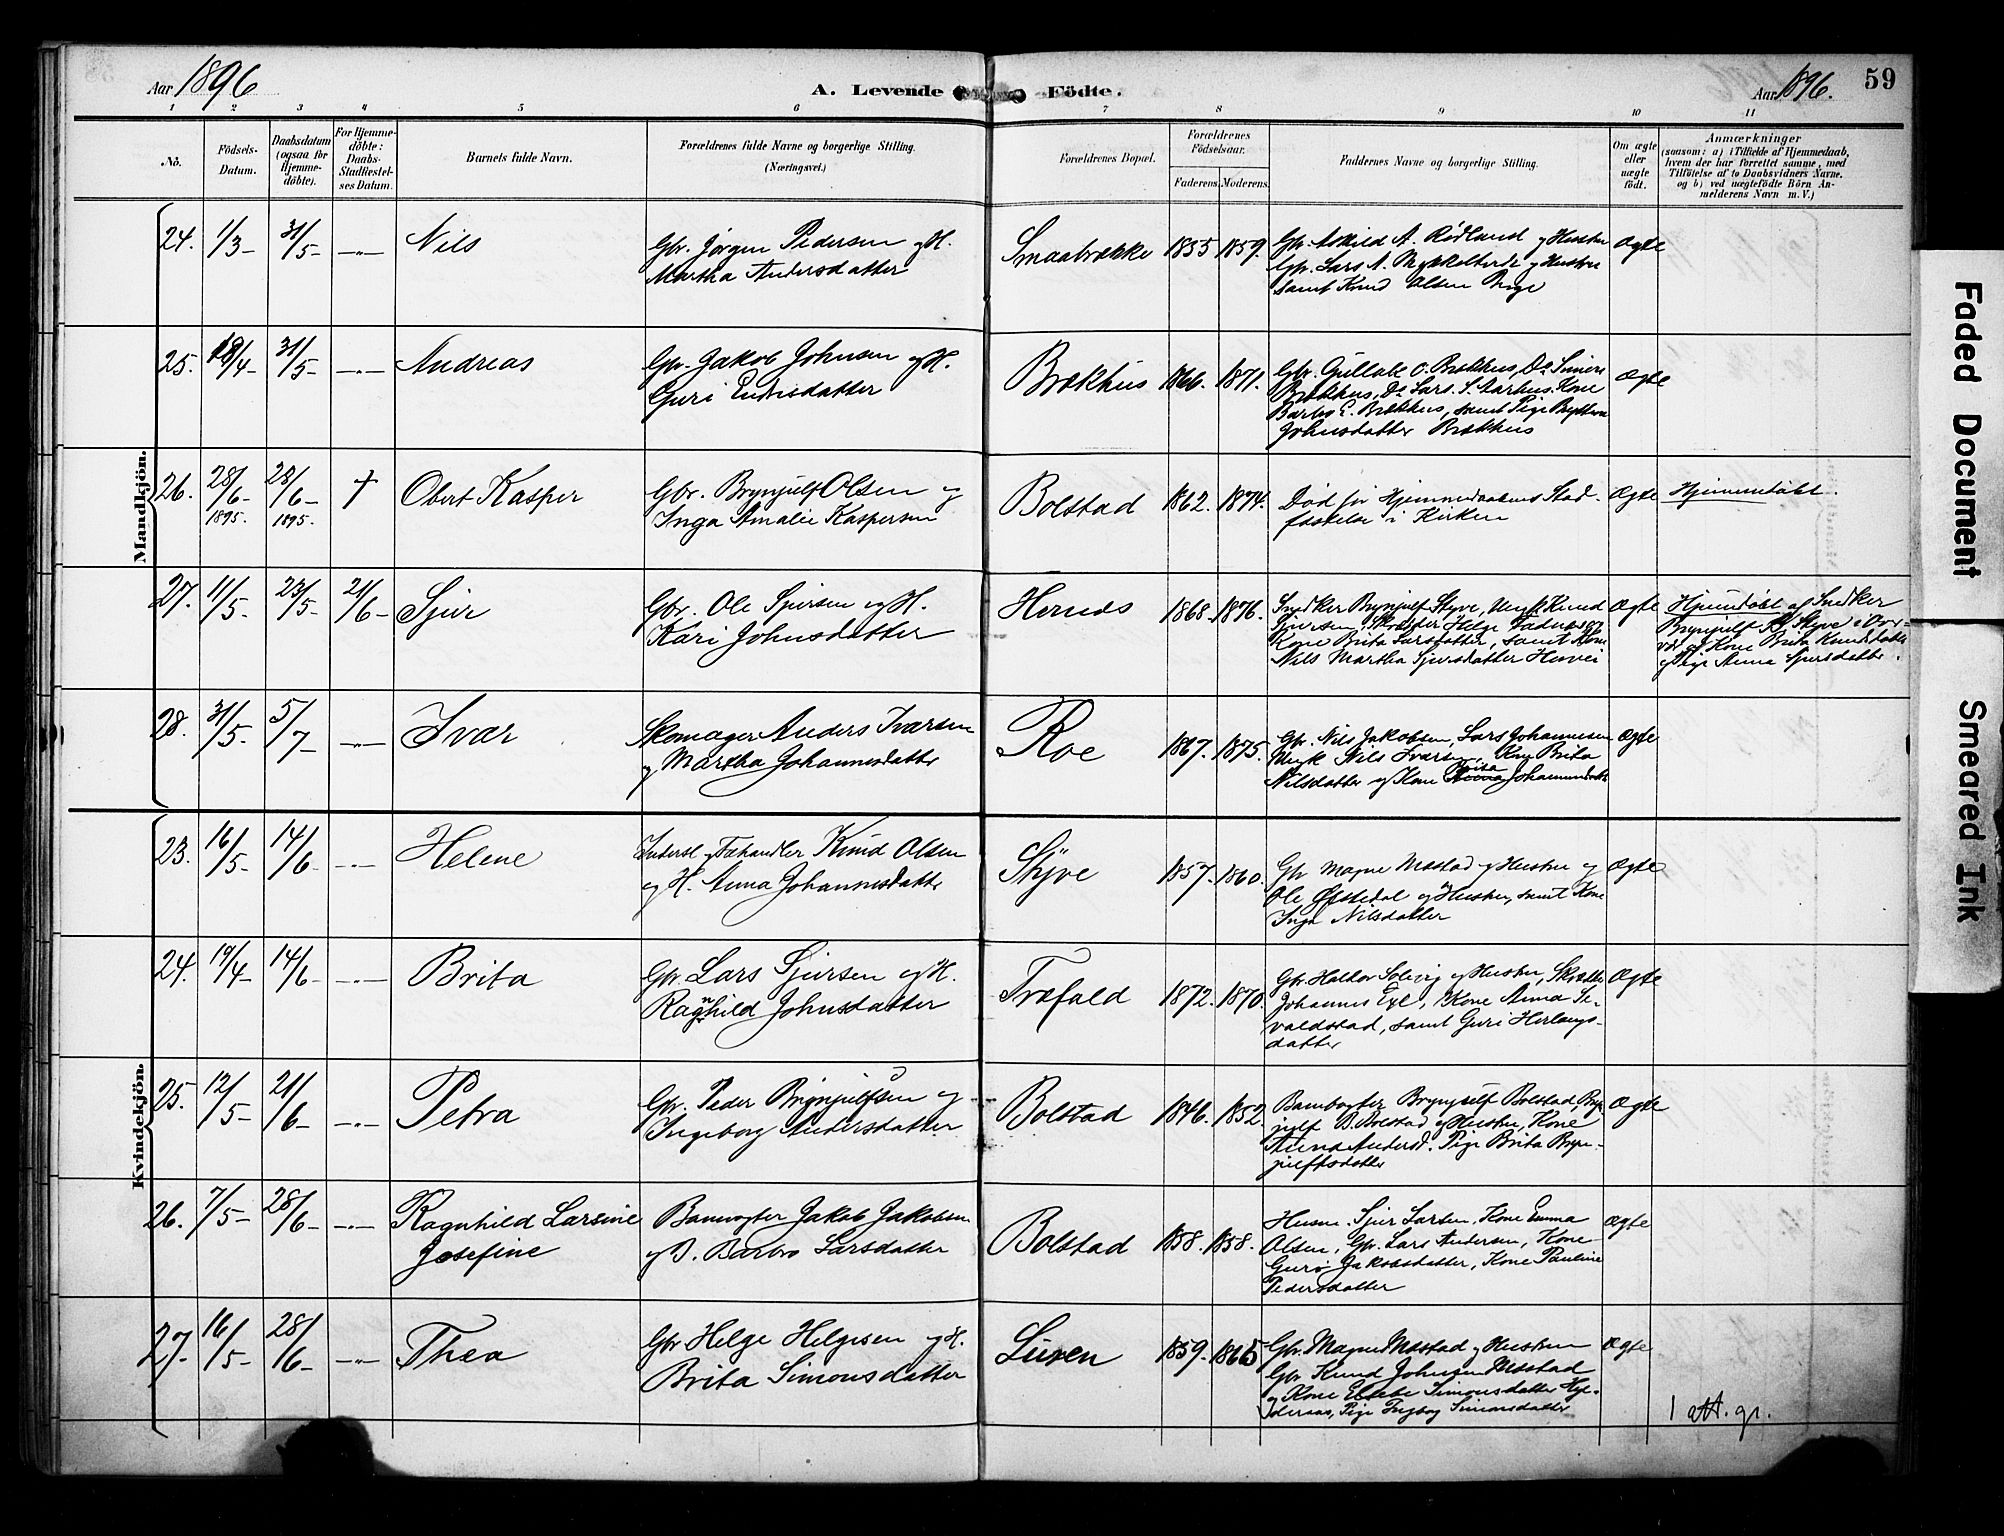 Aar 1896
A. Levende Födte.
Aar 1896.
59
1 2 3 4 5 6 7 8 9 10 11
No.
Födsels-Datum.
Daabsdatum (ogsaa for Hjemme-döbte).
For Hjemme-döbte: Daabs-Stadfæstel-ses Datum.
Barnets fulde Navn.
Forældrenes fulde Navne og borgerlige Stilling.
(Næringsvei.)
Forældrenes Bopæl.
Forældrenes Födselsaar.
Faderens. Moderens.
Faddernes Navne og borgerlige Stilling.
Om ægte eller uægte födt.
Anmærkninger
(saasom: a) i Tilfælde af Hjemmedaab,
hvem der har forrettet samme, med
Tilföielse af to Daabsvidners Navne.
og b) ved uægtefödte Börn An-
melderens Navn m. V.)
Mandkjön.
24. 1/3 31/5 Nils
Gbr. Jørgen Pedersen og H.
Martha Andersdatter
Smaabrække 1855 1859.
Gbr. Askild A. Rødland og Hustru
Gbr. Lars A. og Hustru
samt Knud Olsen
Ægte
25. 18/4 31/5 Andreas
Gbr. Jakob Johnsen og H.
Guri
Brækhus 1866. 1871.
Gbr. Gullak O. Brækhus, Do Simen
Brækhus, Do Lars S. Aarhus. Kone
Barbro E. Brækhus, samt Pige
Johnsdatter Brækhus
Ægte
26. 28/6 1895. 28/6 1895. † Obert Kasper
Gbr. Brynjulf Olsen og
Inga Amalie Kaspersen
Bolstad 1862. 1874.
Død før Hjemmedaabens Stad-
fæstelse i Kirken
Ægte Hjemmedøbt.
27. 11/5 23/5 21/6 Sjur
Gbr. Ole Sjursen og H.
Kari Johnsdatter
Hernes 1868. 1876.
Snedker Brynjulf Styve, Ungk Knud
Sjursen, Helge
Kone Brita Larsdatter, samt Kone
Nils Martha Sjursdatter
Ægte
Hjemmedøbt af Snedker
Brynjulf Styve
Kone Brita Knudsdatter
og Pige Anna Sjursdatter.
28. 31/5 5/7 Ivar
Skomager Anders Ivarsen
og Martha Johannesdatter
Roe 1867. 1875.
Gbr. Nils Jakobsen, Lars Johannesen
Ungk Nils Ivarsen Brita
Nilsdatter og Kone Brita Johannesdatter
Ægte
Kvindekjön.
23. 16/5 14/6 Helene
Inderst og Fæhandler Knud Olsen
og H. Anna Johannesdatter
Styve 1857. 1860.
Gbr Magne Mæstad og Hustru og
Ole Øfstedal og Hustru, samt Kone
Inga Nilsdatter
Ægte
24. 19/4 14/6 Brita
Gbr. Lars Sjursen og H.
Ragnhild Johnsdatter
Træfald 1872. 1870.
Gbr. Haldor Solvig og Hustru, Skrædder
Johannes Eye, Kone Anna Se-
valdstad, samt Guri Herlaugs-
datter
Ægte
25. 12/5 21/6 Petra
Gbr. Peder Brynjulfsen og
Ingeborg Andersdatter
Bolstad 1846. 1852.
Banvogter Brynjulf Bolstad, Bryn-
julf B. Bolstad og Hustru, Kone
Anna Andersd. Pige Brita Bryn-
julfsdatter
Ægte
26. 7/5 28/6 Ragnhild Larsine
Josefine
Banevogter Jakob Jakobsen
og H. Barbro Larsdatter
Bolstad 1858. 1858.
Husm. Sjur Larsen, Kone Emma
Olsen, Gbr. Lars Andersen, Kone
Guro Jakobsdatter, Kone Pauline
Pedersdatter
Ægte
27. 16/5 28/6 Thea
Gbr Helge Helgesen og H.
Brita Simonsdatter
Luven 1859. 1865
Gbr. Magne Mæstad og Hustru
Gbr Knud Johnsen Mæstad
og Kone Simonsdatter
Pige Ingbog Simonsdatter
Ægte
1 att. gr.
Faded Document
Smeared Ink